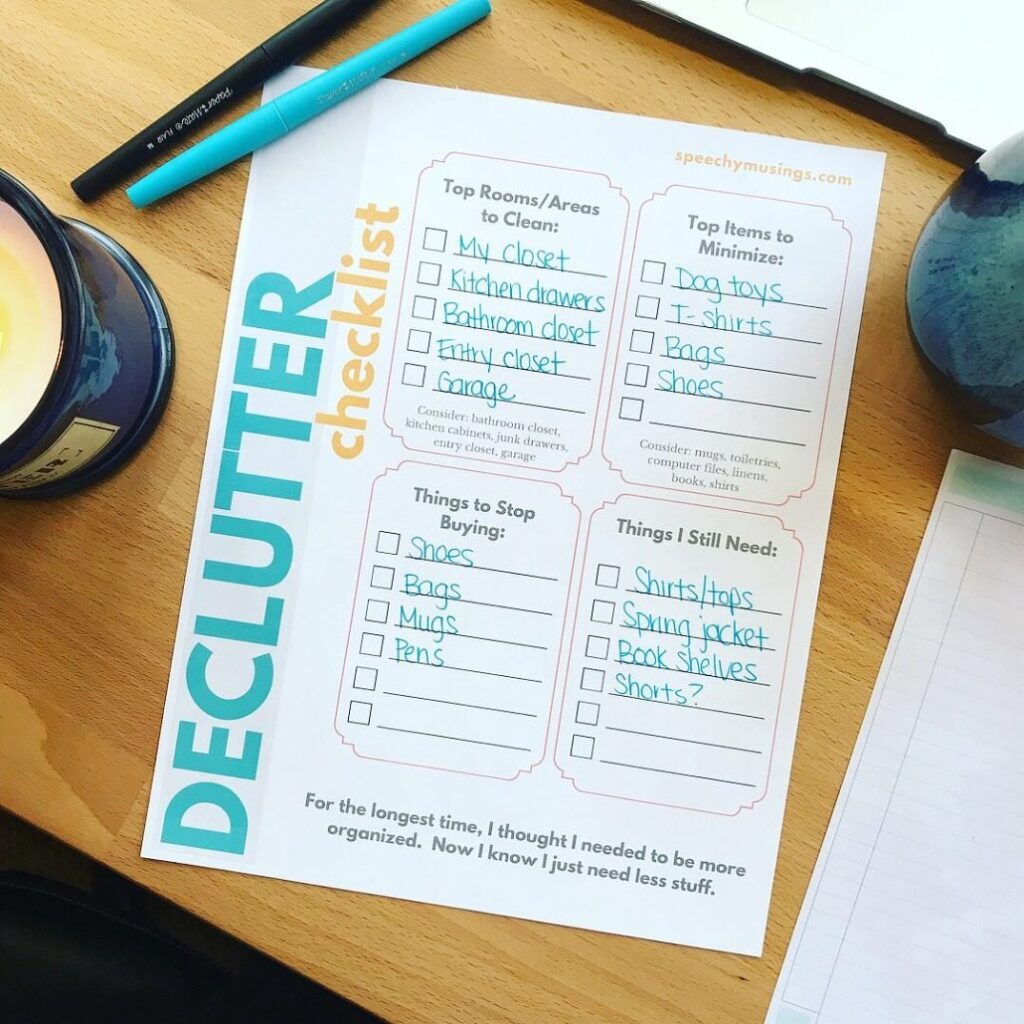 Paper Mate® FLAIR M
Paper Mate
speechymusings.com
DECLUTTER
checklist
Top Rooms/Areas
to Clean:
My closet
Kitchen drawers
Bathroom closet
Entry closet
Garage
Consider: bathroom closet,
kitchen cabinets, junk drawers,
entry closet, garage
Top Items to
Minimize:
Dog toys
T-shirts
Bags
Shoes
Consider: mugs, toiletries,
computer files, linens,
books, shirts
Things to Stop
Buying:
Shoes
Bags
Mugs
Pens
Things I Still Need:
Shirts/tops
Spring jacket
Book shelves
Shorts?
For the longest time, I thought I needed to be more
organized. Now I know I just need less stuff.